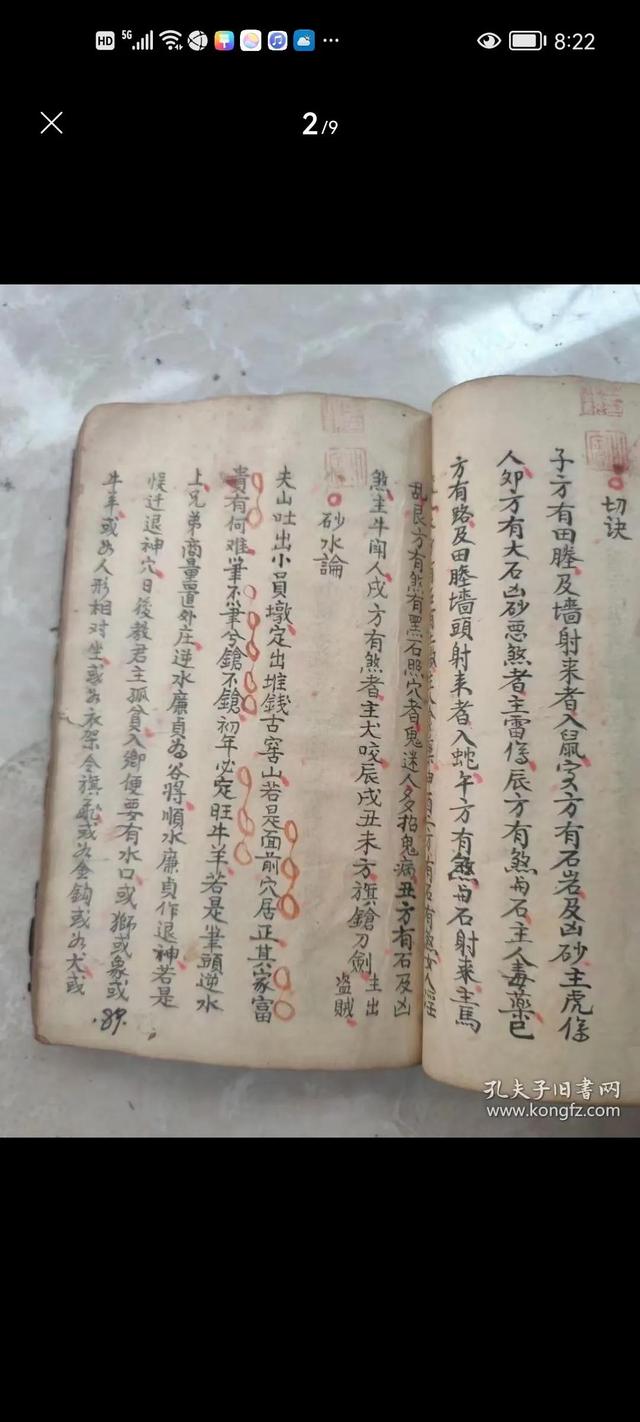 HD 5G 8:22
2/9
切诀
子方有田塍及墙射来者入鼠亥方有石岩及凶砂主虎傷
人卯方有大石凶砂恶煞者主雷傷辰方有煞与石主人毒藥巳
方有路及田塍墙頭射来者入蛇午方有煞与石射来主馬
乱艮方有煞有黑石照穴者鬼迷人多招鬼病丑方有石及凶
煞主牛闹人戌方有煞者主犬咬辰戌丑未方旗鎗刀劍主出盗賊
砂水論
夫山吐出小員墩定出堆錢古窖山若是面前穴居正其家富
貴有何难筆不筆兮鎗不鎗初年必定旺牛羊若是筆頭逆水
上兄弟商量置外庄逆水廉貞為谷將順水廉貞作退神若是
悮迁退神穴日後教君主孤貧入鄉便要有水口或獅或象或
牛羊或如人形相对坐或如衣架令旗或如金鈎或如犬或
89
孔夫子旧书网
www.kongfz.com